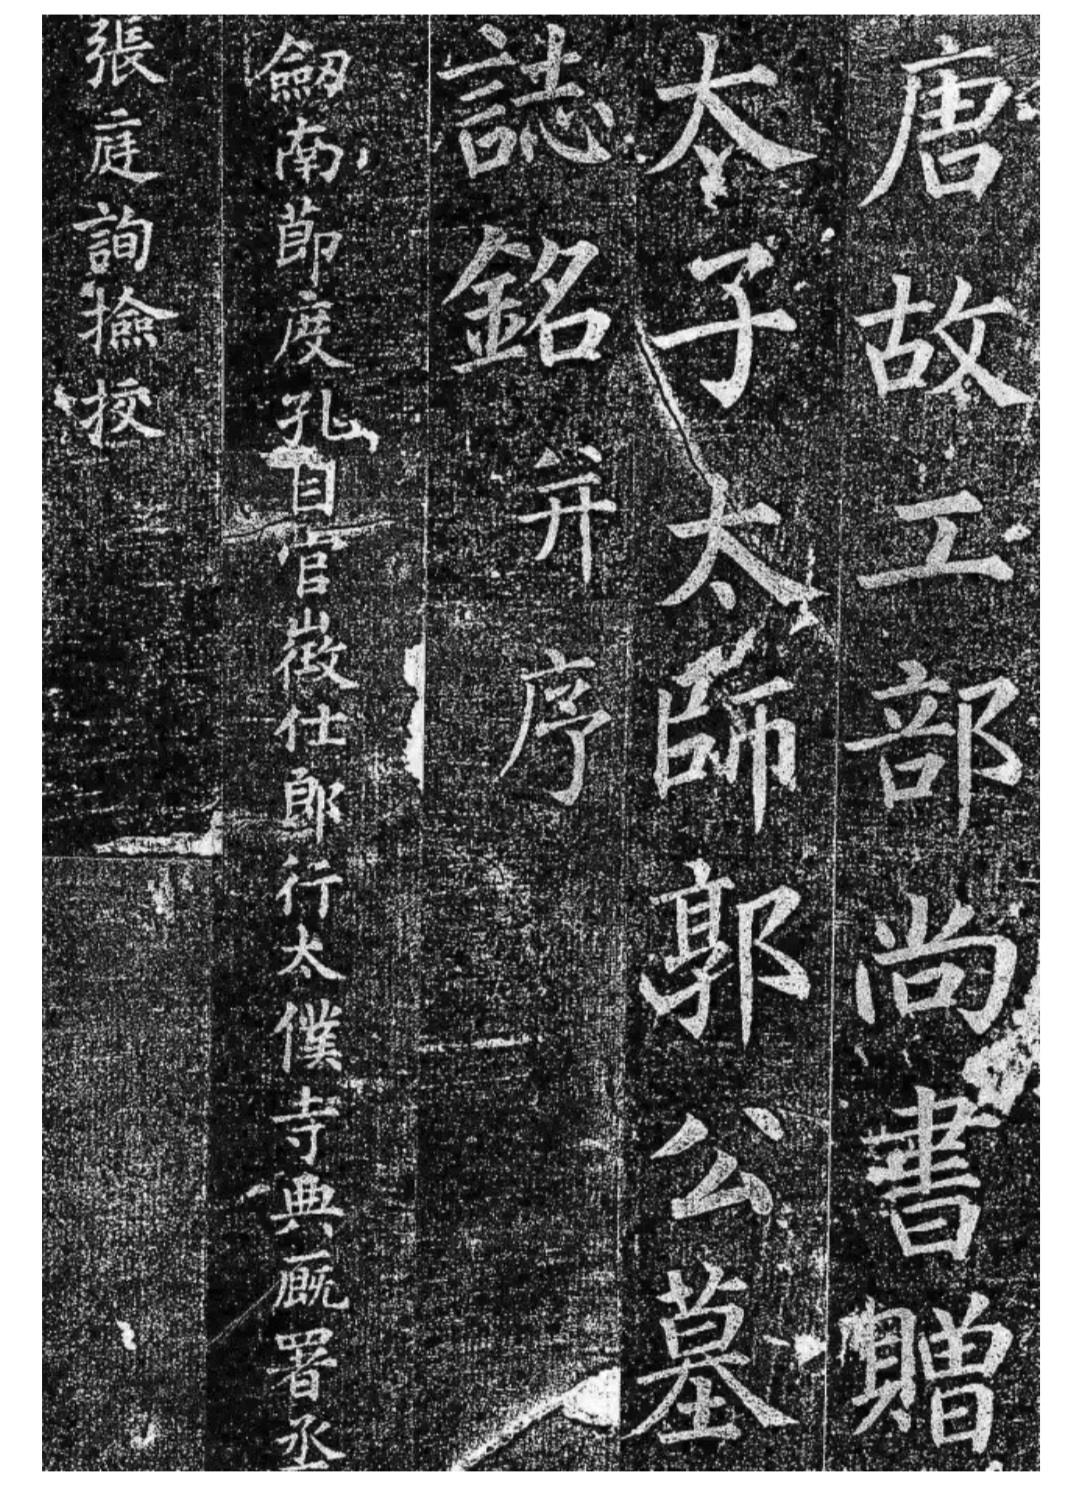 唐故工部尚書贈
太子太師郭公墓
誌銘并序
劒南節度孔目官徴仕郎行太僕寺典廐署丞
張庭詢撿挍